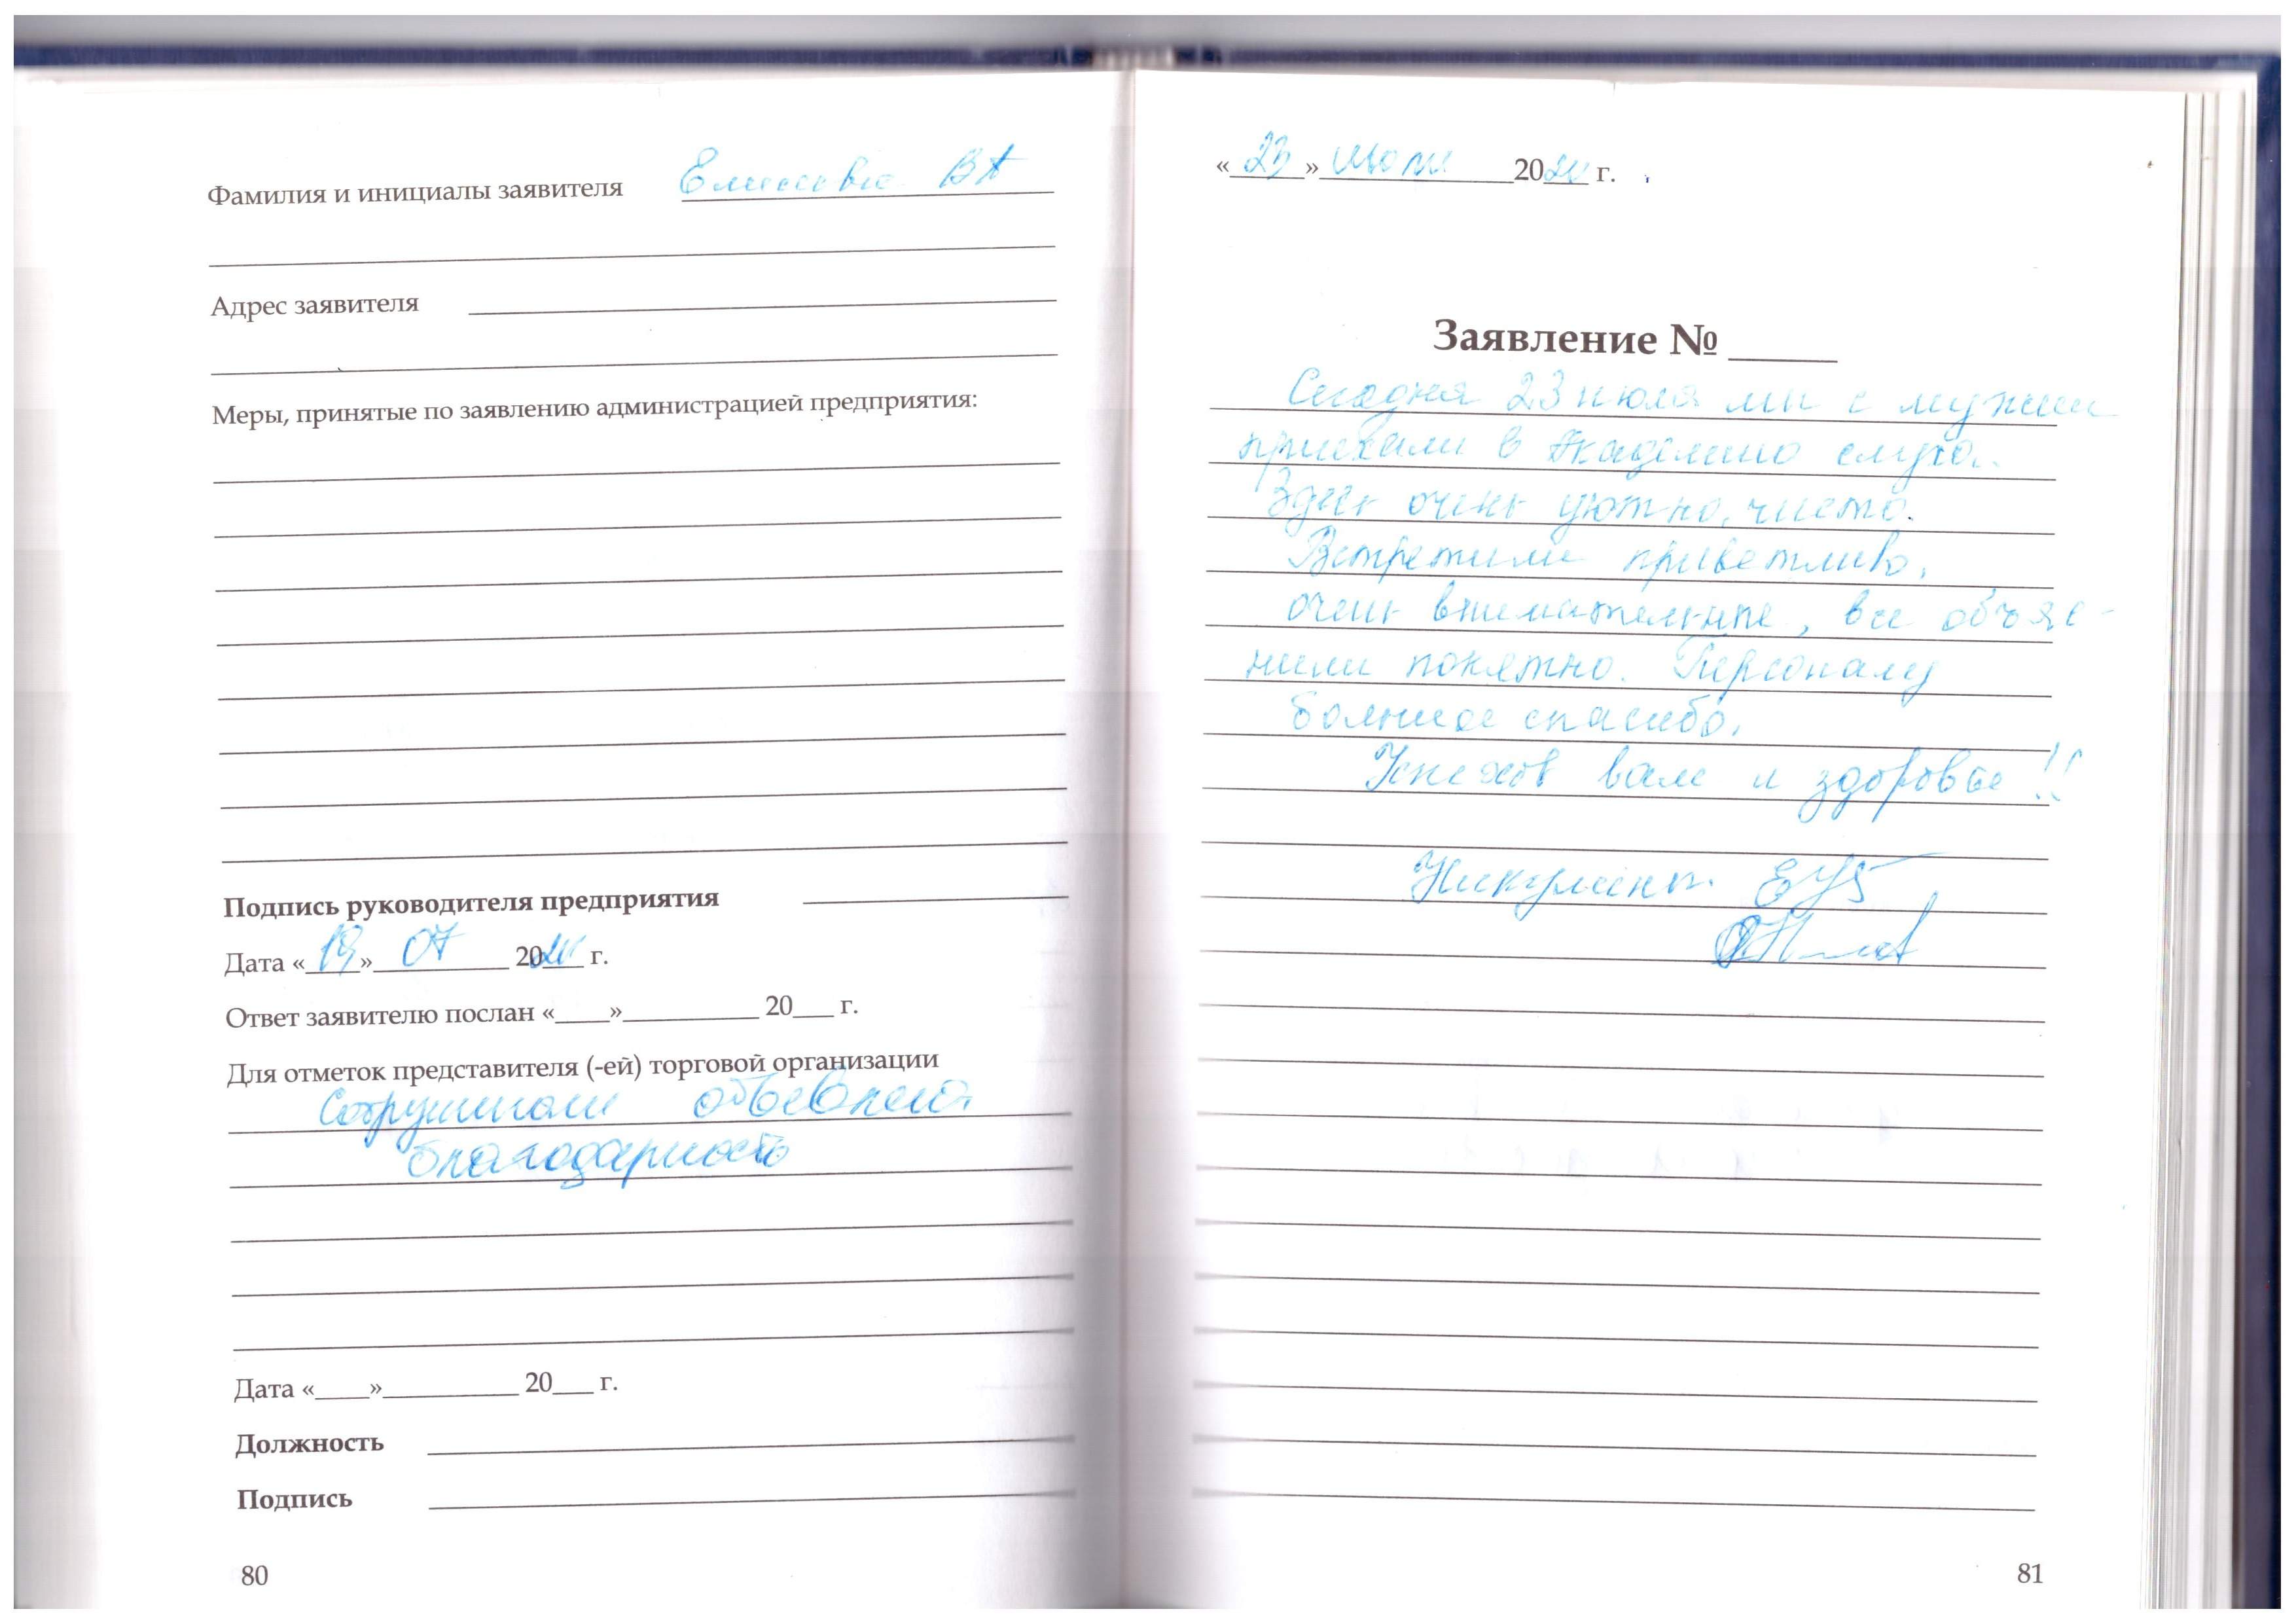 Фамилия и инициалы заявителя ВА
Адрес заявителя
Меры, принятые по заявлению администрацией предприятия:
Подпись руководителя предприятия
Дата «19» 07 2024 г.
Ответ заявителю послан «____»__________ 20___ г.
Для отметок представителя (-ей) торговой организации
Сотрудникам объявлена
благодарность
Дата «____»__________ 20___ г.
Должность
Подпись
80
«23» июля 2024 г.
Заявление № _____
Сегодня 23 июля мы с мужем
приехали в Академию слуха.
Здесь очень уютно, чисто.
Встретили приветливо,
очень внимательные, все объяс-
нили понятно. Персоналу
большое спасибо.
Успехов вам и здоровье!!
81